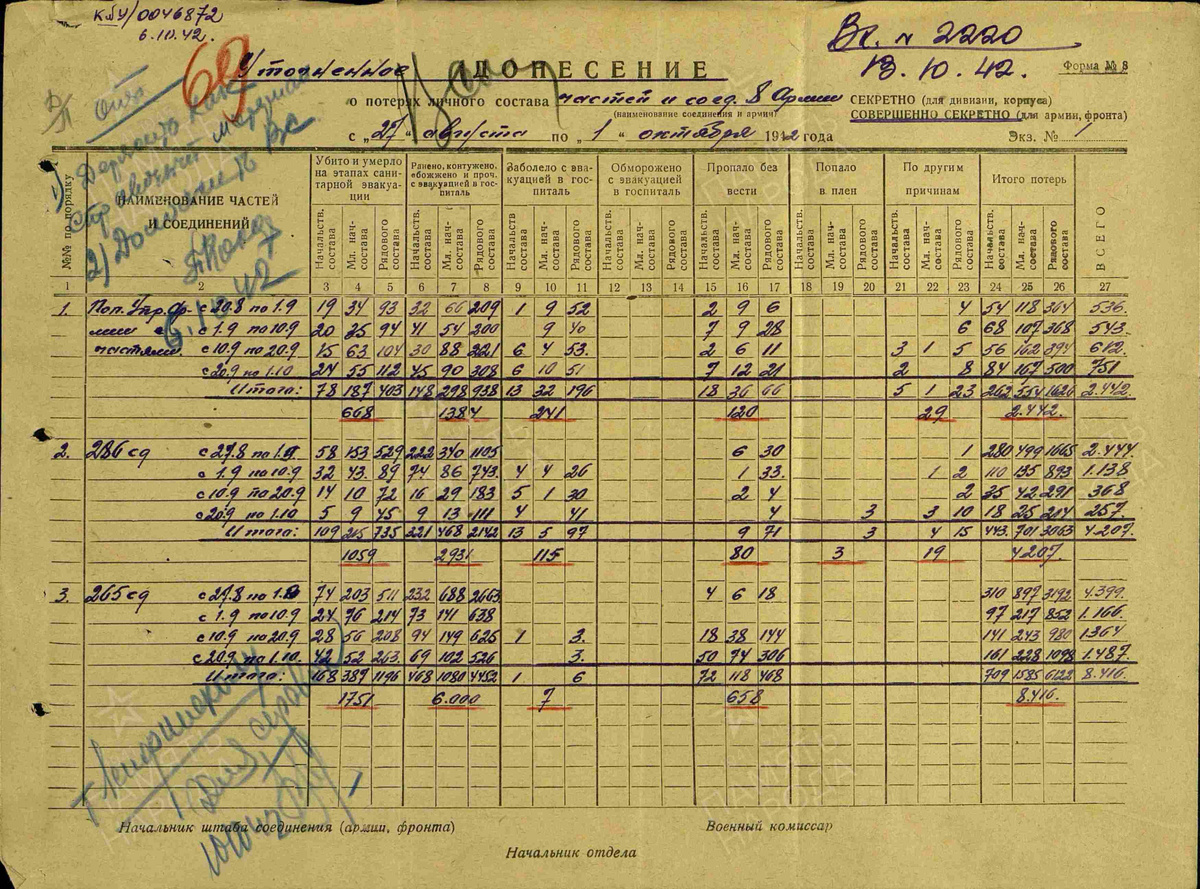 КбУ/0046872
6.10.42.
69
Вс. № 2220
13.10.42.
Уточненное ДОНЕСЕНИЕ
Форма № 8
о потерях личного состава частей и соед. 8 Армии
(наименование соединения и армии)
СЕКРЕТНО (для дивизии, корпуса)
СОВЕРШЕННО СЕКРЕТНО (для армии, фронта)
с „27“ августа по „1“ октября 1942 года
Экз. № 1
№№ по порядку
НАИМЕНОВАНИЕ ЧАСТЕЙ И СОЕДИНЕНИЙ
Убито и умерло на этапах санитарной эвакуации
Ранено, контужено, обожжено и проч. с эвакуацией в госпиталь
Заболело с эвакуацией в госпиталь
Обморожено с эвакуацией в госпиталь
Пропало без вести
Попало в плен
По другим причинам
Итого потерь
ВСЕГО
Начальств. состава Мл. нач-состава Рядового состава Начальств. состава Мл. нач-состава Рядового состава Начальств. состава Мл. нач-состава Рядового состава Начальств. состава Мл. нач-состава Рядового состава Начальств. состава Мл. нач-состава Рядового состава Начальств. состава Мл. нач-состава Рядового состава Начальств. состава Мл. нач-состава Рядового состава Начальств. состава Мл. нач-состава Рядового состава
1 2 3 4 5 6 7 8 9 10 11 12 13 14 15 16 17 18 19 20 21 22 23 24 25 26 27
1. Пол. Упр. Ар- с 20.8 по 1.9 19 34 93 32 66 209 1 9 52 2 9 6 4 54 118 364 536.
мии с с 1.9 по 10.9 20 35 94 41 54 200 9 40 7 9 28 6 68 107 368 543.
частями. с 10.9 по 20.9 15 63 104 30 88 221 6 4 53. 2 6 11 3 1 5 56 162 394 612.
с 20.9 по 1.10 24 55 112 45 90 308 6 10 51 7 12 21 2 8 84 167 500 751
Итого: 78 187 403 148 298 938 13 32 196 18 36 66 5 1 23 262 554 1626 2.442.
668 1384 241 120 29 2.442.
2. 286 сд с 27.8 по 1.9 58 153 529 222 340 1105 6 30 1 280 499 1665 2.444.
с 1.9 по 10.9 32 43. 89 74 86 743. 4 4 26 1 33. 1 2 110 135 893 1.138
с 10.9 по 20.9 14 10 72 16 29 183 5 1 30 2 4 2 35 42 291 368
с 20.9 по 1.10 5 9 45 9 13 111 4 41 4 3 3 10 18 25 214 257
Итого: 109 215 735 321 468 2142 13 5 97 9 71 3 4 15 443. 701 3063 4.207.
1059 2931 115 80 3 19 4.207.
3. 265 сд с 27.8 по 1.9 74 203 511 232 688 2663 4 6 18 310 897 3192 4.399.
с 1.9 по 10.9 24 76 214 73 141 638 97 217 852 1.166
с 10.9 по 20.9 28 56 208 94 149 625 1 3. 18 38 144 141 243 980 1364
с 20.9 по 1.10. 42 52 263. 69 102 526 3. 50 74 306 161 228 1098 1.487.
Итого: 168 387 1196 468 1080 4452 1 6 72 118 468 709 1585 6122 8.416.
1751 6.000 7 658 8.416.
Начальник штаба соединения (армии, фронта)
Военный комиссар
Начальник отдела